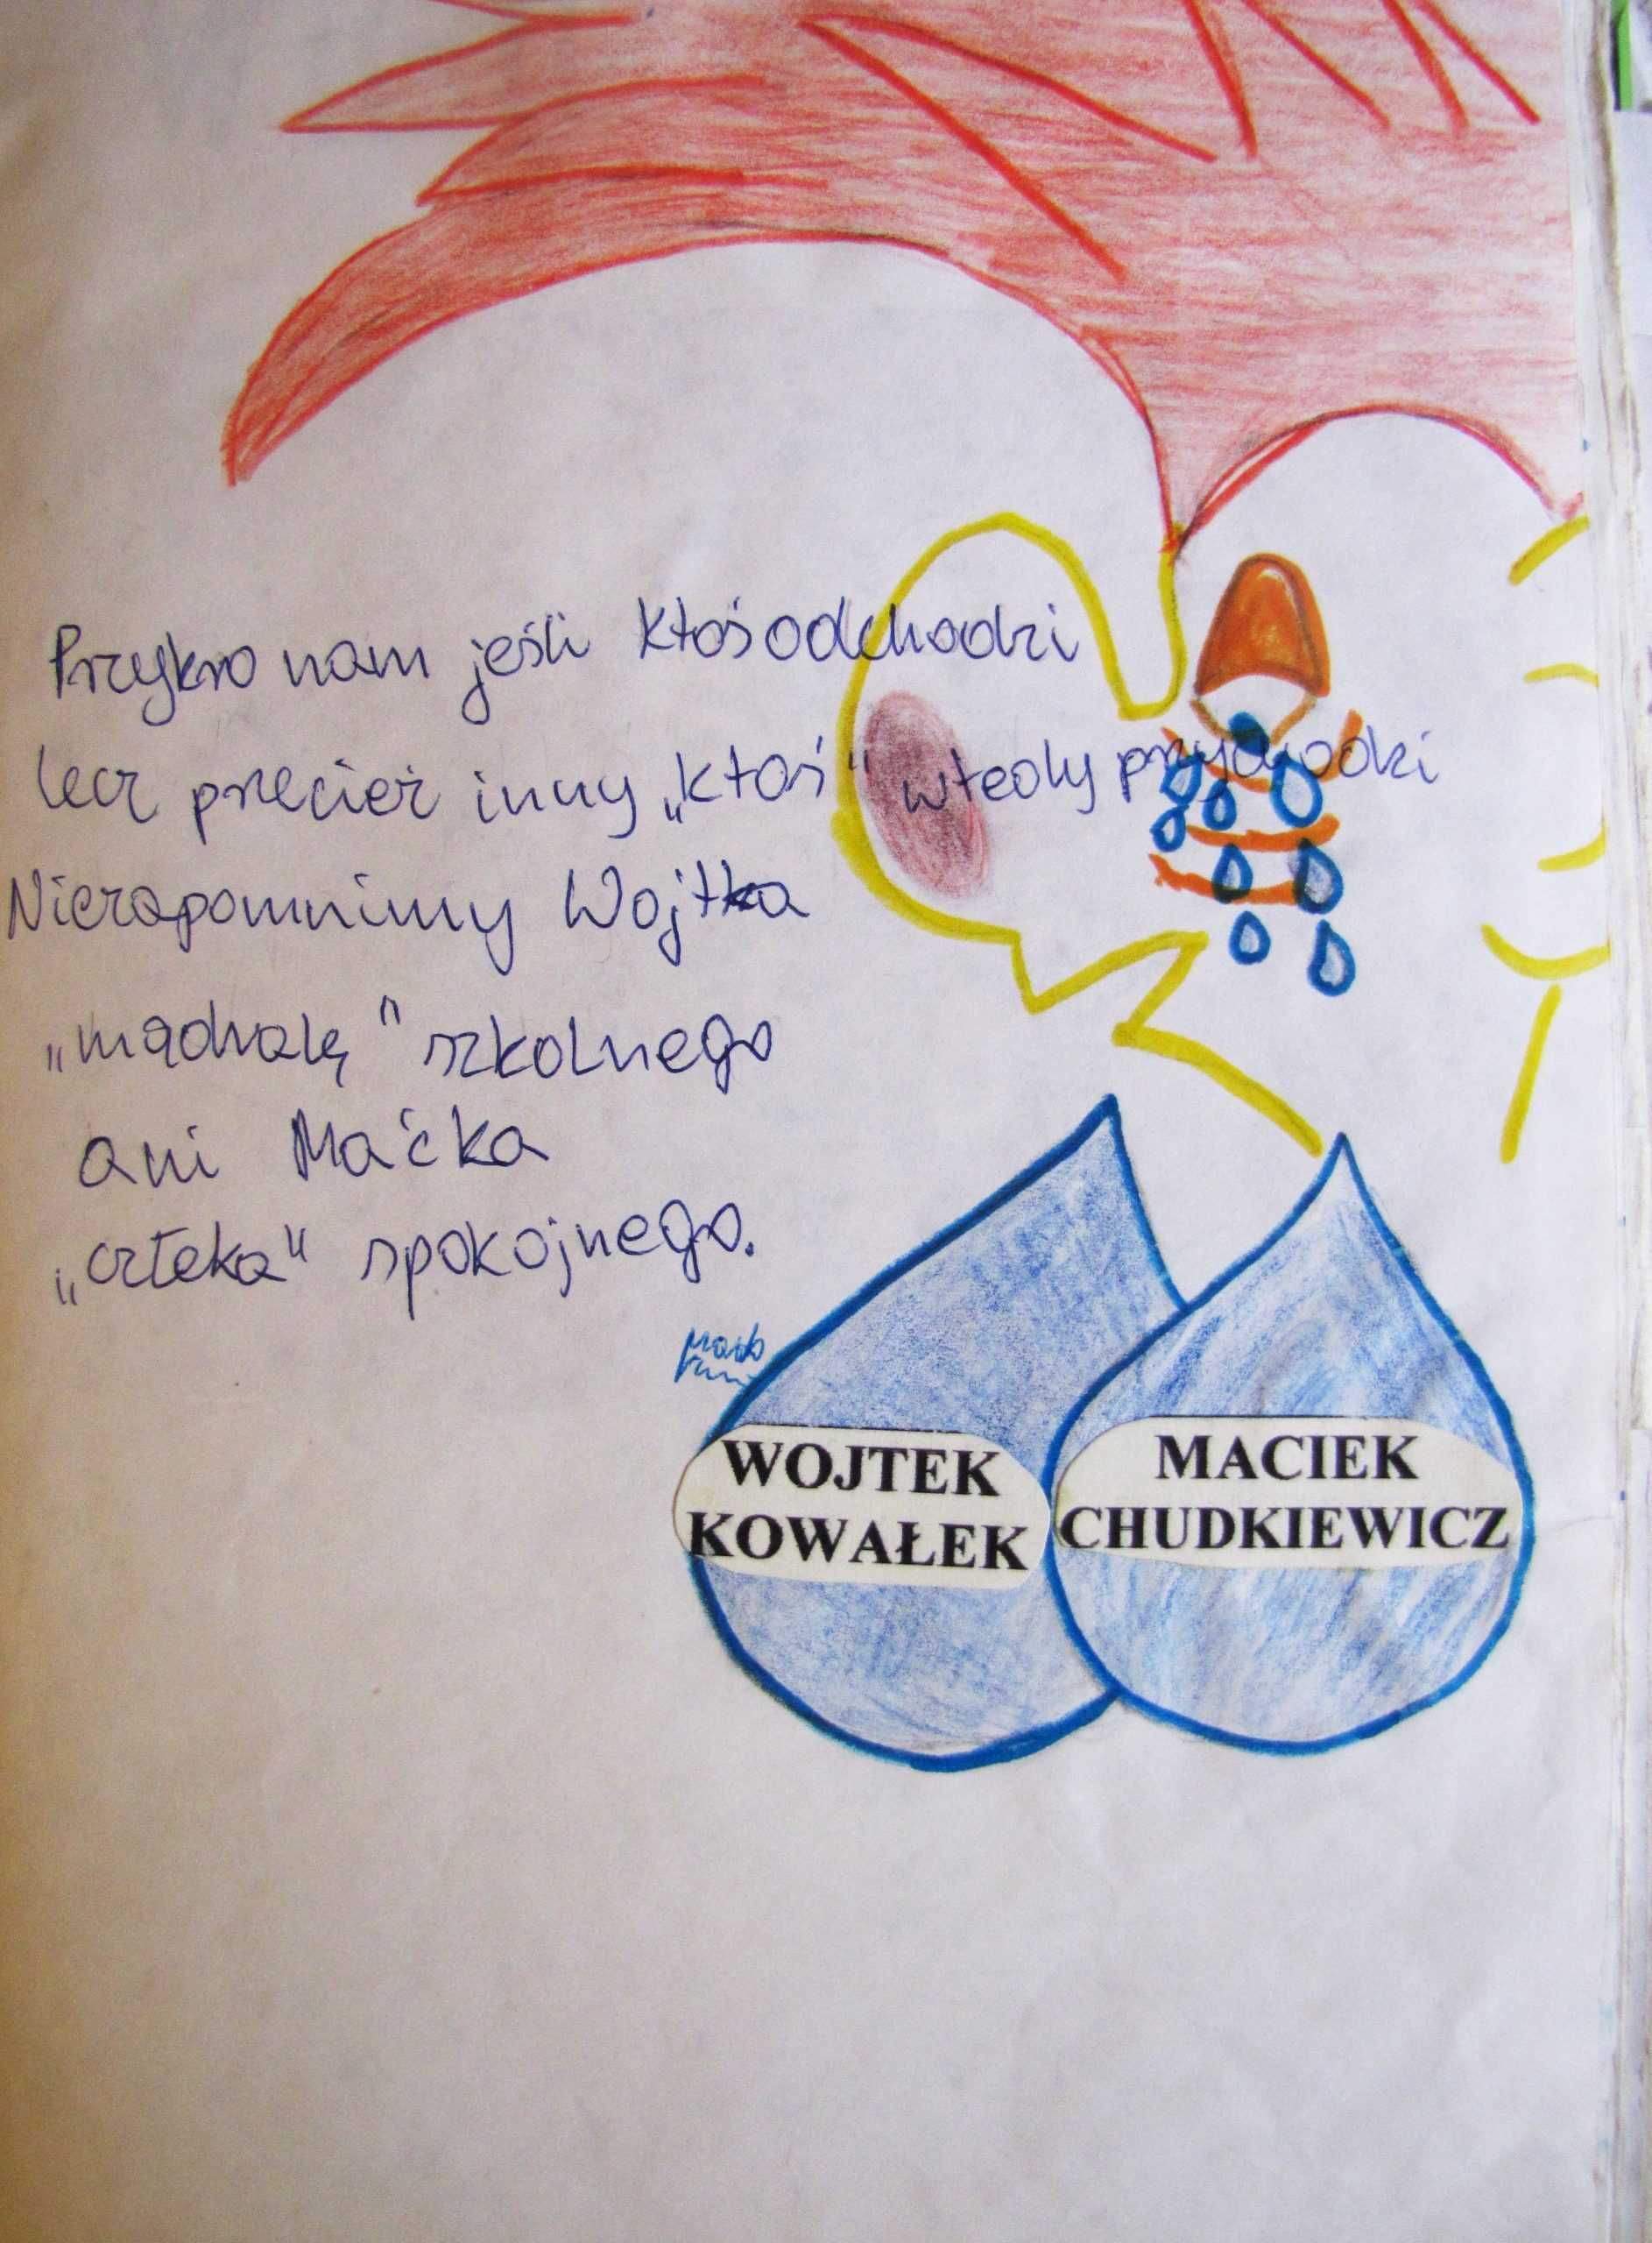 Przykro nam jeśli ktoś odchodzi
lecz przecież inny „ktoś" wtedy przychodzi
Niezapomnimy Wojtka
„mądralę" szkolnego
ani Maćka
„człeka" spokojnego.
WOJTEK
KOWAŁEK
MACIEK
CHUDKIEWICZ